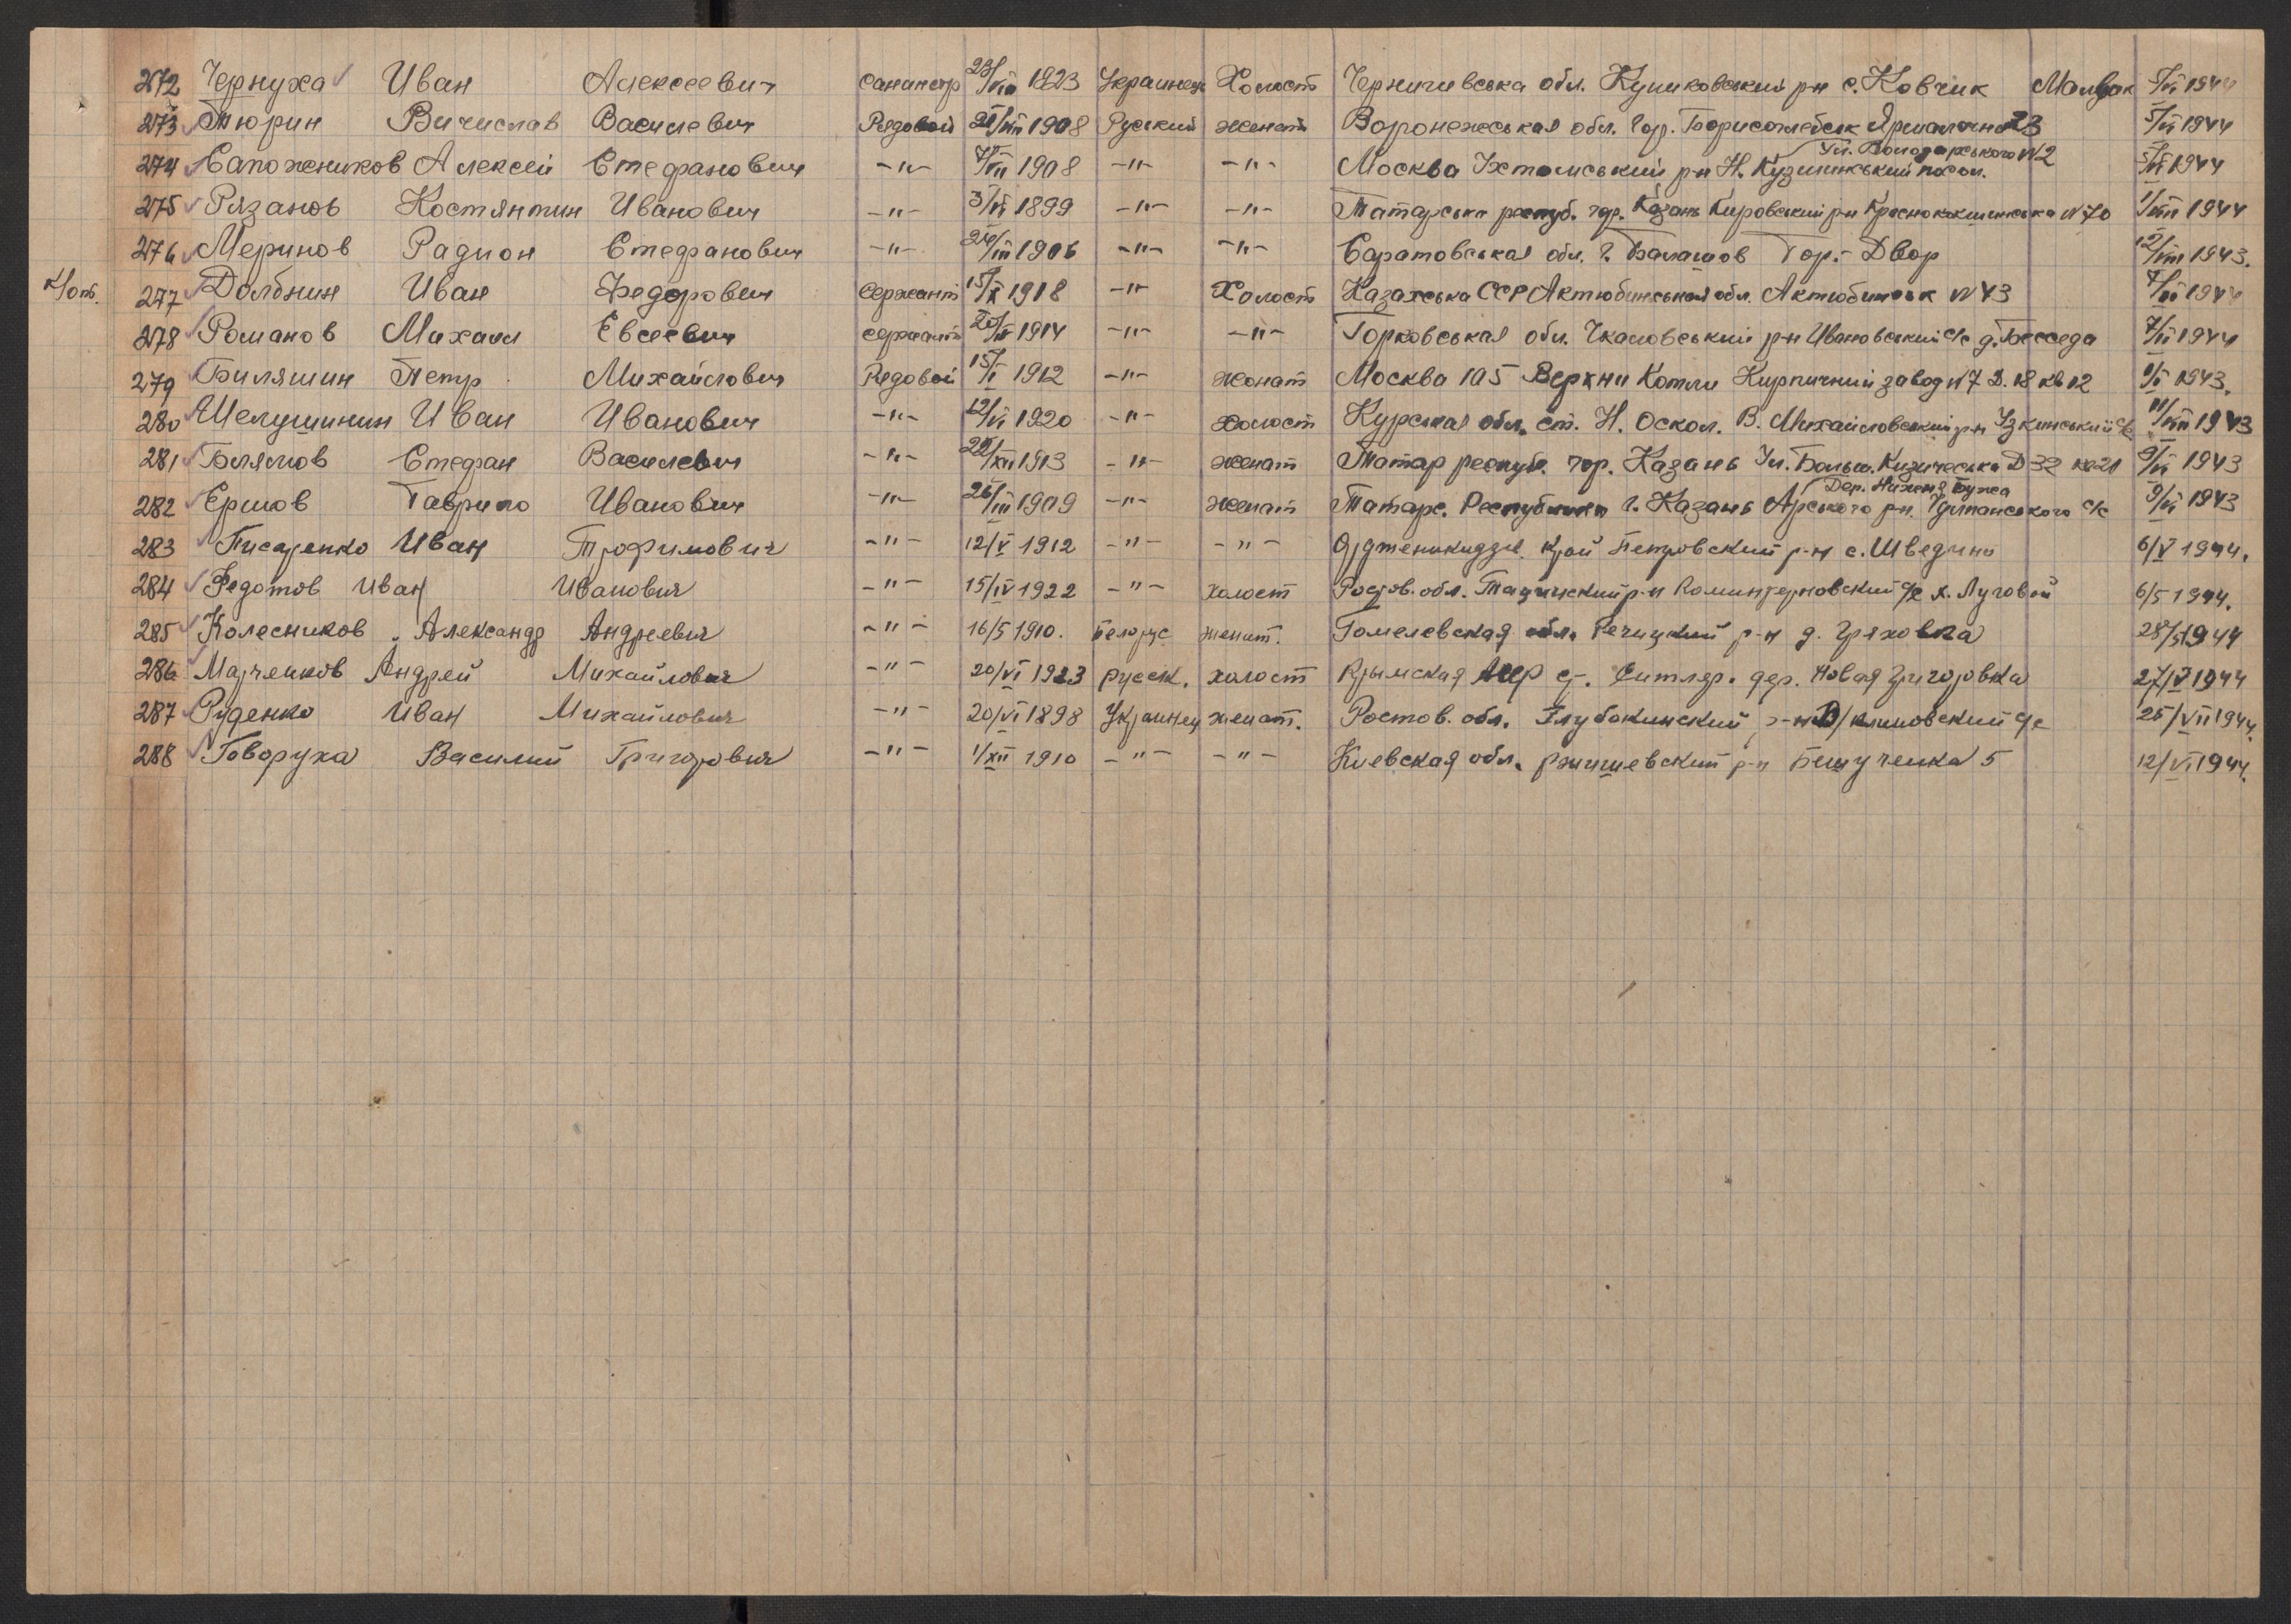 272 Чернуха Иван Алексеевич санинстр 23/VIII 1923 Украинец Холост Черниговська обл. Куликовський р-н с. Ковчик Малдак 5/VI 1944
273 Тюрин Вичислав Василевич Рядовой 21/VIII 1908 Руський женат Воронежськая обл. Гор. Борисоглебск Ярмалочна 23 5/VI 1944
Ул. Володарського N2
274 Сапожников Алексей Стефанович -"- 7/VII 1908 -"- -"- Москва Ухтомський р-н Н. Кузминський посол. 5/VI 1944
275 Рязанов Костянтин Иванович -"- 3/VI 1899 -"- -"- Татарська респуб. гор. Казань Кировський р-н Краснококшинська N 70 1/VIII 1944
276 Меринов Радион Стефанович -"- 24/III 1906 -"- -"- Саратовськая обл. г. Балашов Гор.- Двор 12/VIII 1943.
277 Долбнин Иван Федорович Сержант 15/X 1918 -"- Холост Казахська ССР Актюбинськая обл. Актюбинськ N 43 7/VI 1944
278 Романов Михаил Евсеевич сержант 20/XI 1914 -"- -"- Горковськая обл. Чкаловський р-н Ивановський с/с д. Беседа 7/VI 1944
279 Биляшин Петр Михайлович Рядовой 15/I 1912 -"- жонат Москва 105 Верхни Котли Кирпичний завод N 7 Д. 18 кв 12 1/X 1943.
280 Шелушинин Иван Иванович -"- 12/VI 1920 -"- холост Курськая обл. ст. Н. Оскол. В. Михайловський р-н Узкинський с/с 11/VIII 1943
281 Блямов Стефан Василевич -"- 22/XII 1913 -"- женат Татар респуб. гор. Казань Ул. Больш. Кизическа Д 32 кв 21 9/VI 1943
Дер. Нижня Бужа
282 Ершов Гаврило Иванович -"- 26/III 1909 -"- женат Татарс. Республики г. Казань Арського р-н. Удманського с/с 9/VI 1943
283 Писаренко Иван Трофимович -"- 12/V 1912 -"- -"- Орджоникидзе. край Петровский р-н с. Шведино 6/V 1944.
284 Федотов Иван Иванович -"- 15/IV 1922 -"- холост Ростов. обл. Тацинский р-н Коминтерновский с/с х. Луговой 6/5 1944.
285 Колесников Александр Андреевич -"- 16/5 1910. Белорус женат. Гомелевская обл. Речицкий р-н д. Гряховка 28/5 1944
286 Марченков Андрей Михайлович -"- 20/VI 1923 русск. холост Крымская АССР ст. Ситляр. дер. Новая Григоровка 27/V 1944
287 Руденко Иван Михайлович -"- 20/VI 1898 Украинец женат. Ростов. обл. Глубокинский р-н В/климовский с/с 25/VII 1944.
288 Говоруха Василий Григорович -"- 1/XII 1910 -"- -"- Киевская обл. ржищевский р-н Бешученка 5 12/VI 1944.